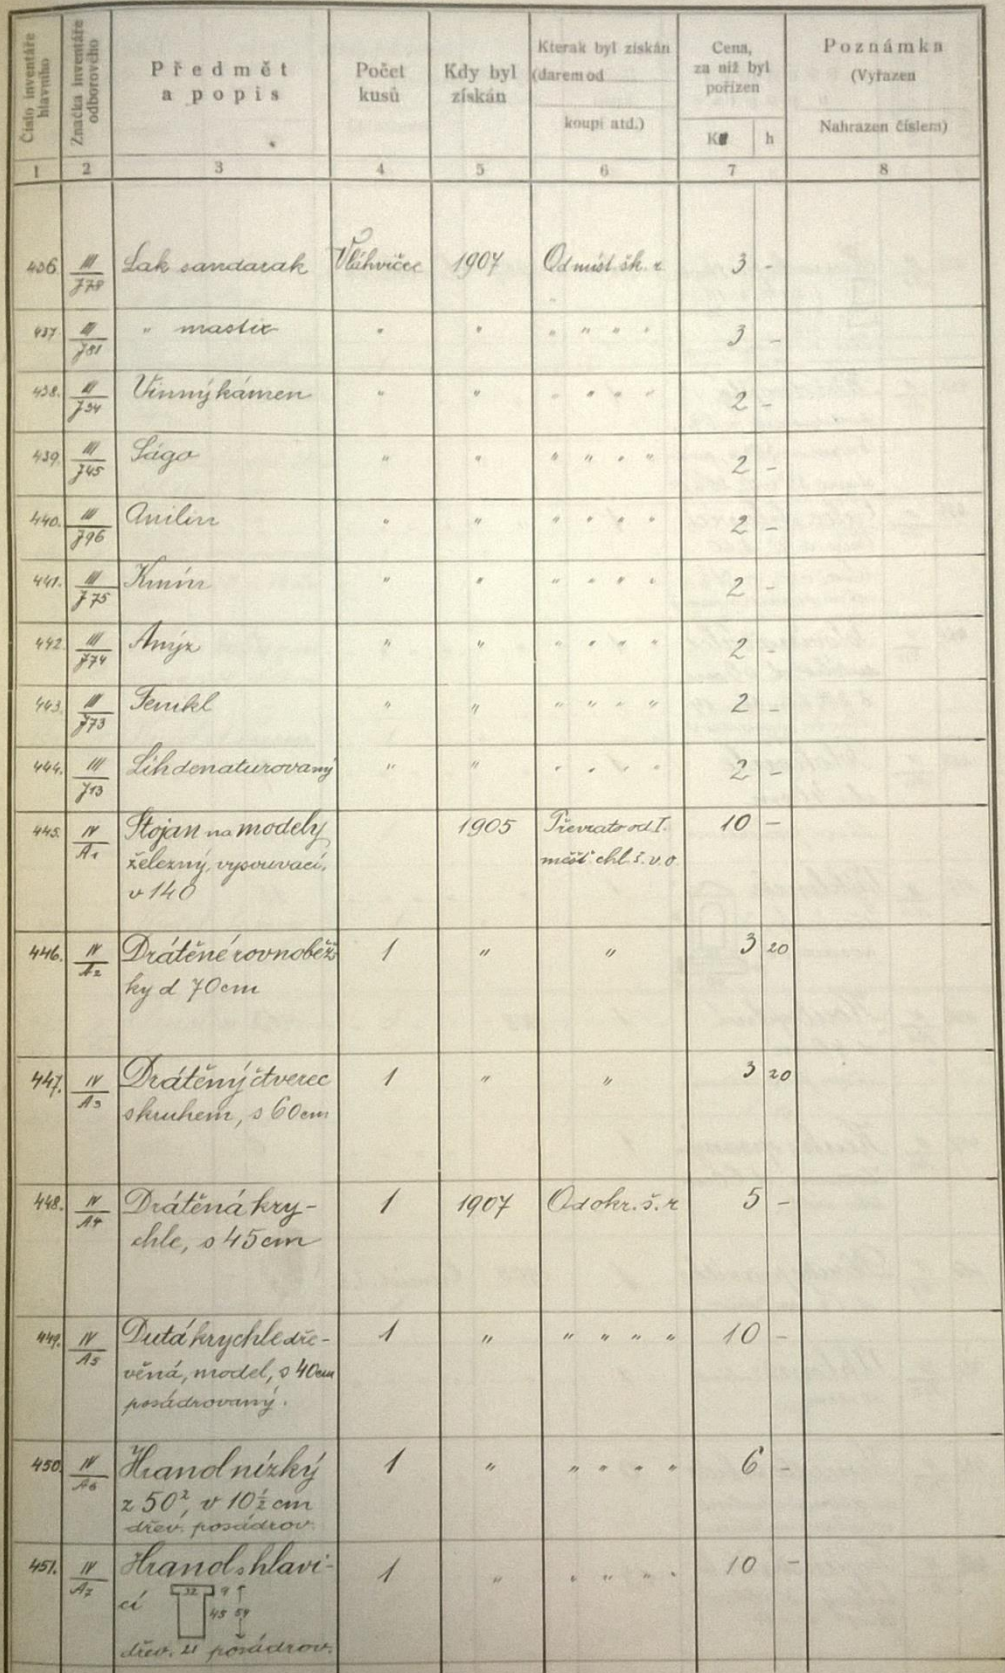 Číslo inventáře hlavního
Značka inventáře odborového
Předmět a popis
Počet kusů
Kdy byl získán
Kterak byl získán (darem od koupi atd.)
Cena, za niž byl pořízen
K h
Poznámka (Vyřazen Nahrazen číslem)
1 2 3 4 5 6 7 8
436. III/J78 Lak sandarak V láhvičce 1907 Od míst. šk. r. 3 -
437. III/J81 " mastix " " " " " " 3 -
438. III/J34 Vinný kámen " " " " " " 2 -
439. III/J45 Ságo " " " " " " 2 -
440. III/J96 Anilin " " " " " " 2 -
441. III/J75 Kmín " " " " " " 2 -
442. III/J74 Anýz " " " " " " 2 -
443. III/J73 Fenikl " " " " " " 2 -
444. III/J13 Líh denaturovaný " " " " " " 2 -
445. IV/A1 Stojan na modely 1905 Převzato od I. 10 -
železný, vysouvací, měšť. chl. š. v. o.
v 140
446. IV/A2 Drátěné rovnoběž- 1 " " 3 20
ky d 70 cm
447. IV/A3 Drátěný čtverec 1 " " 3 20
s kruhem, s 60 cm
448. IV/A4 Drátěná kry- 1 1907 Od okr. š. r. 5 -
chle, s 45 cm
449. IV/A5 Dutá krychle dře- 1 " " " " " 10 -
věná, model, s 40 cm
posádrovaný.
450. IV/A6 Hranol nízký 1 " " " " " 6 -
z 50², v 10 1/2 cm
dřev. posádrov.
451. IV/A7 Hranol s hlavi- 1 " " " " " 10 -
cí 32 9
45 54
dřev. 21 posádrov.